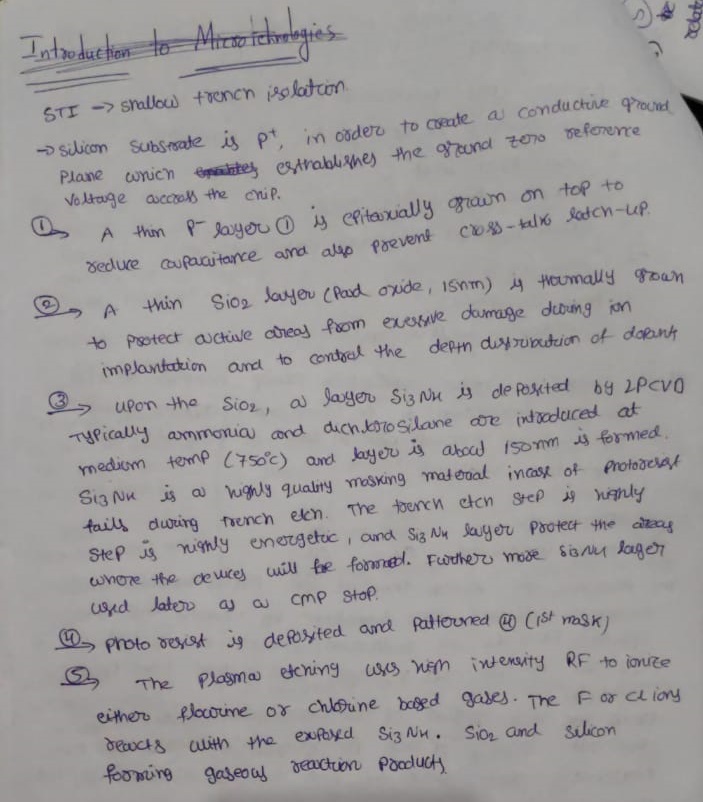 Introduction to Microtchnologies
STI -> shallow trench isolation
-> silicon substrate is p+, in order to create a conductive ground
plane which esthablishes the ground zero reference
voltage accross the chip.
① A thin p- layer ① is epitaxially grown on top to
reduce capacitance and also prevent cross-talk latch-up.
② A thin SiO2 layer (Pad oxide, 15nm) is thermally grown
to protect active areas from exessive damage during ion
implantation and to control the depth distribution of dopant
③ upon the SiO2, a layer Si3N4 is deposited by LPCVD
Typically ammonia and dichlorosilane are introduced at
medium temp (750°c) and layer is about 150nm is formed.
Si3N4 is a highly quality masking material incase of photoresist
fails during trench etch. The trench etch step is highly
step is highly energetic, and Si3N4 layer protect the areas
where the devices will be formed. Further more Si3N4 layer
used later as a cmp stop.
④ photo resist is deposited and patterned ④ (1st mask)
⑤ The plasma etching uses high intensity RF to ionize
either flourine or chlorine based gases. The F or cl ions
reacts with the exposed Si3N4. SiO2 and silicon
forming gaseous reaction products.